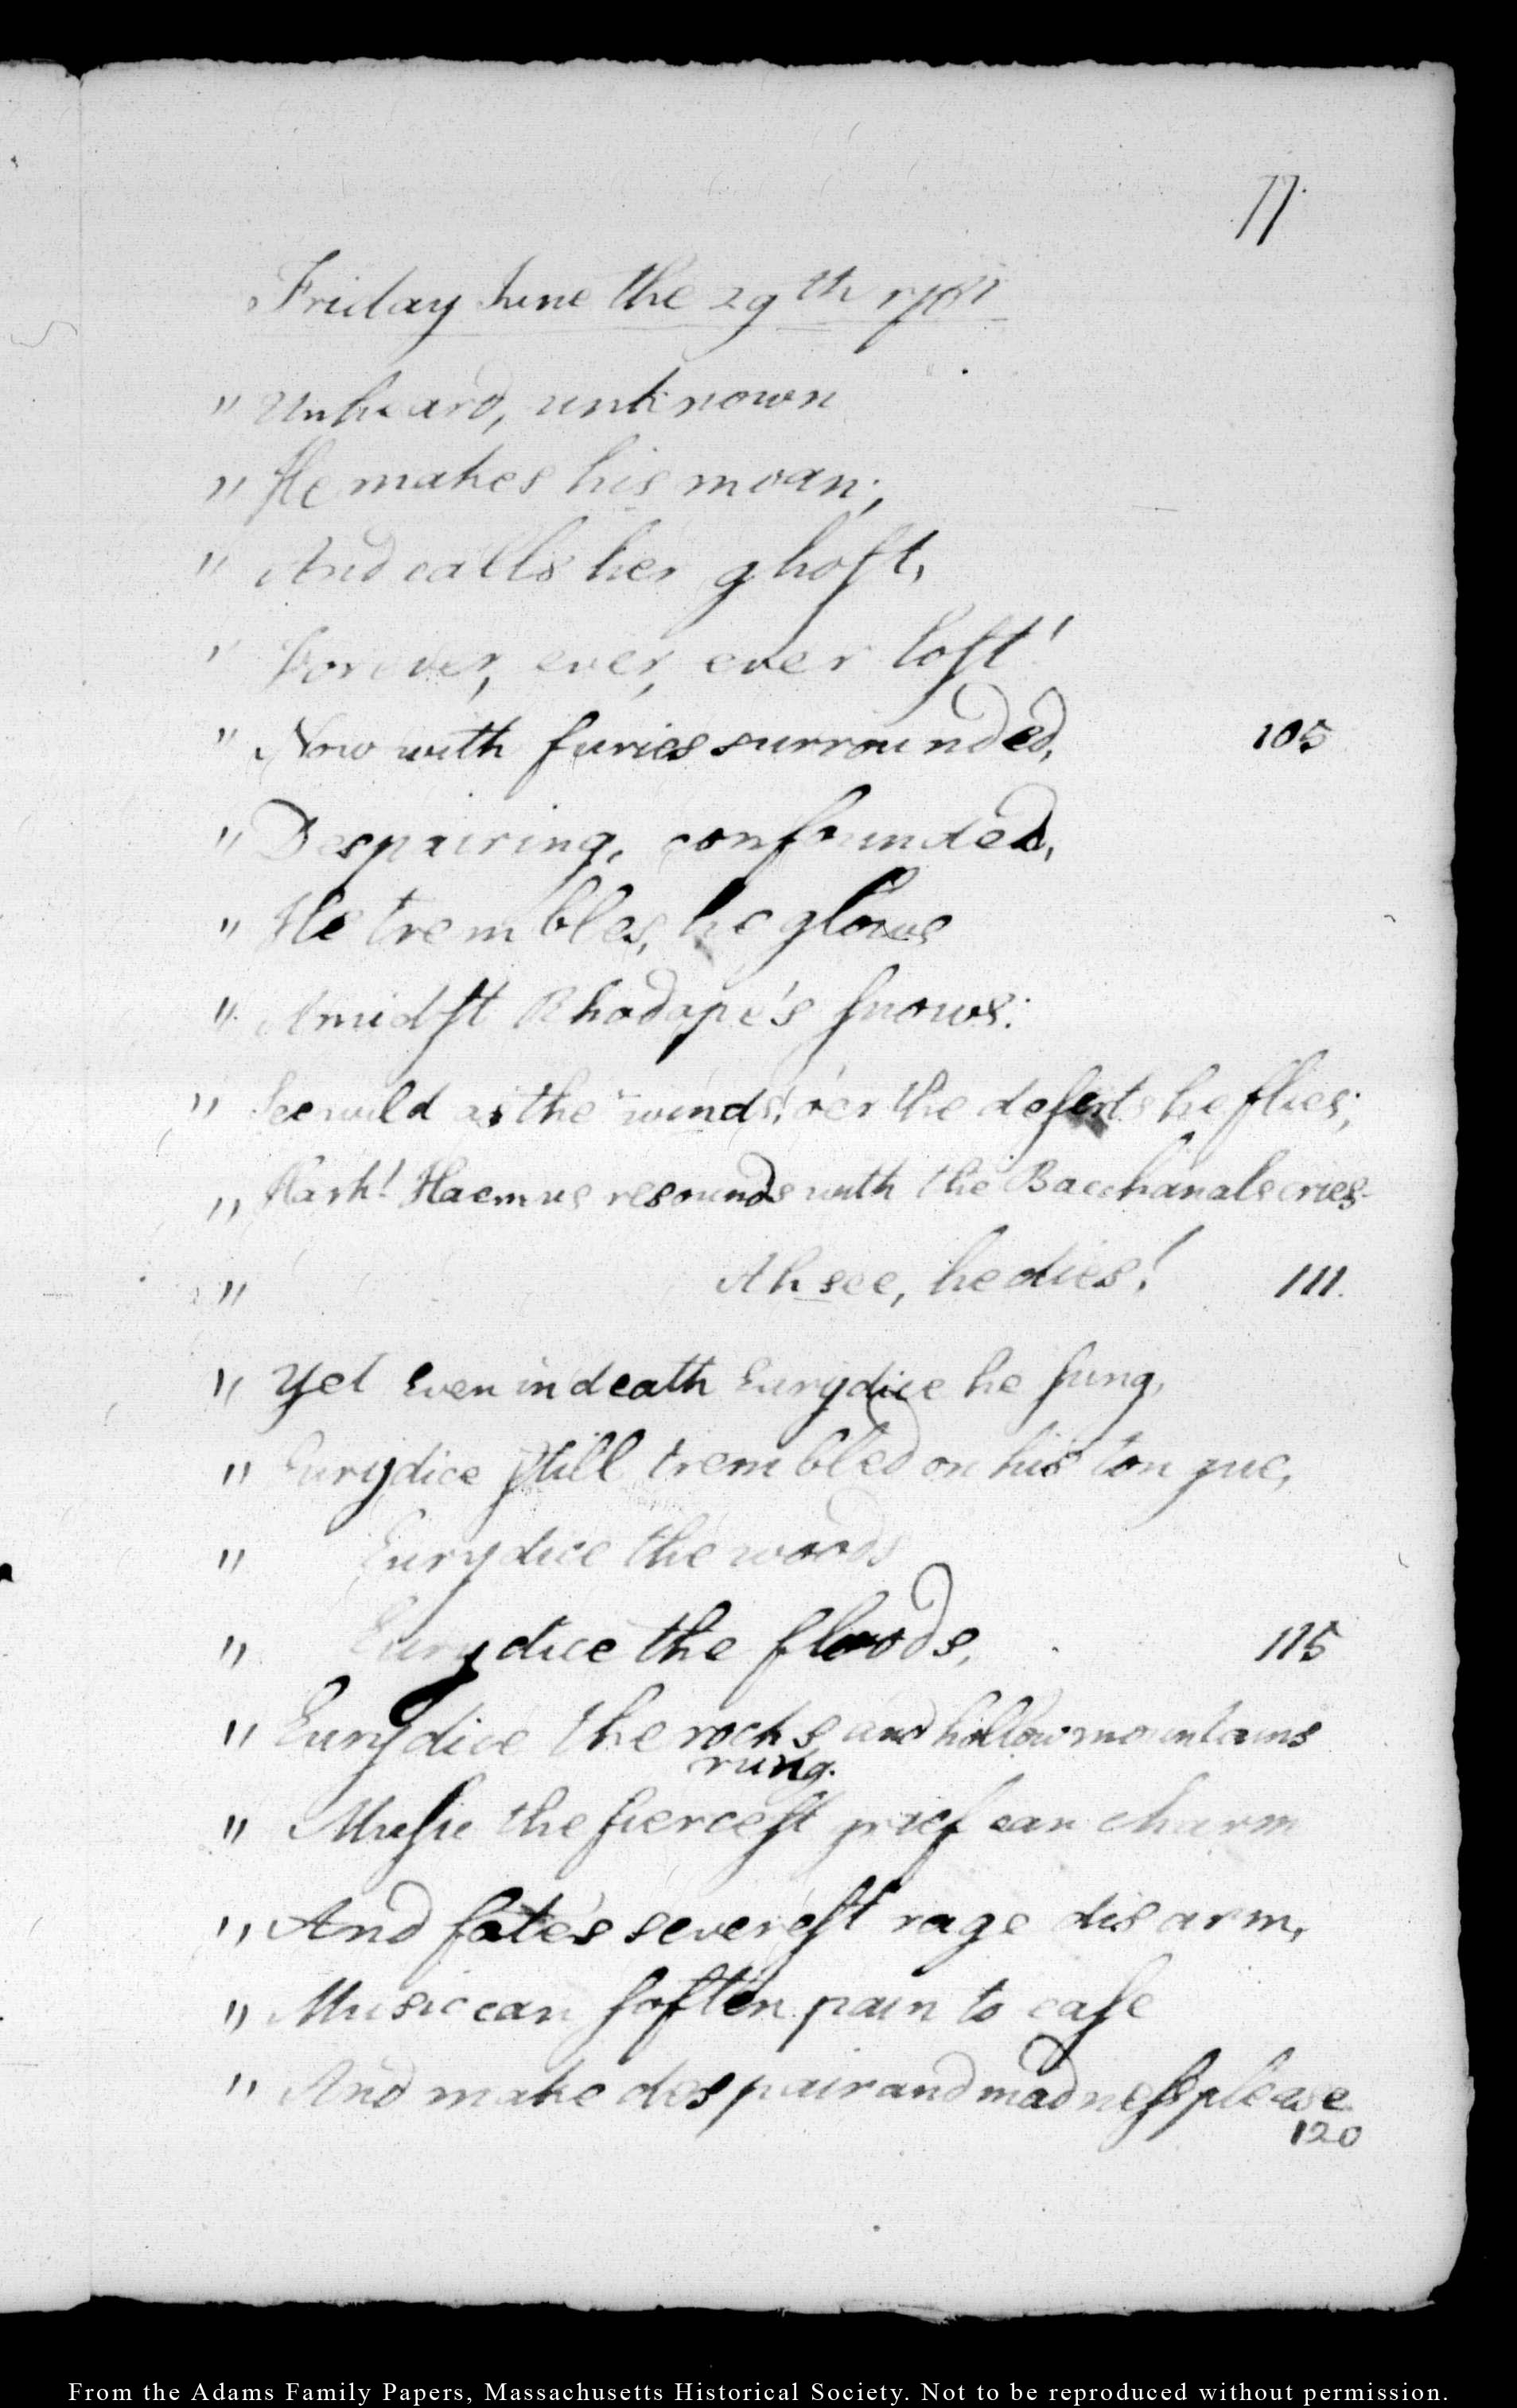 77.
Friday June the 29th 1781
" Unheard, unknown
" He makes his moan;
" And calls her ghost,
" Forever, ever, ever lost!
" Now with furies surrounded, 105
" Despairing, confounded,
" He trembles, he glows
" Amidst Rhodope's snows:
" See wild as the winds! o'er the deserts he flies;
" Hark! Haemus resounds with the Bacchanals cries-
" Ah see, he dies! 111.
" Yet Even in death Eurydice he sung,
" Eurydice still trembled on his tongue,
" Eurydice the woods
" Eurydice the floods, 115
" Eurydice the rocks, and hollow mountains
rung.
" Music the fiercest grief can charm
" And fate's severest rage disarm,
" Music can soften pain to ease
" And make despair and madness please
120
From the Adams Family Papers, Massachusetts Historical Society. Not to be reproduced without permission.